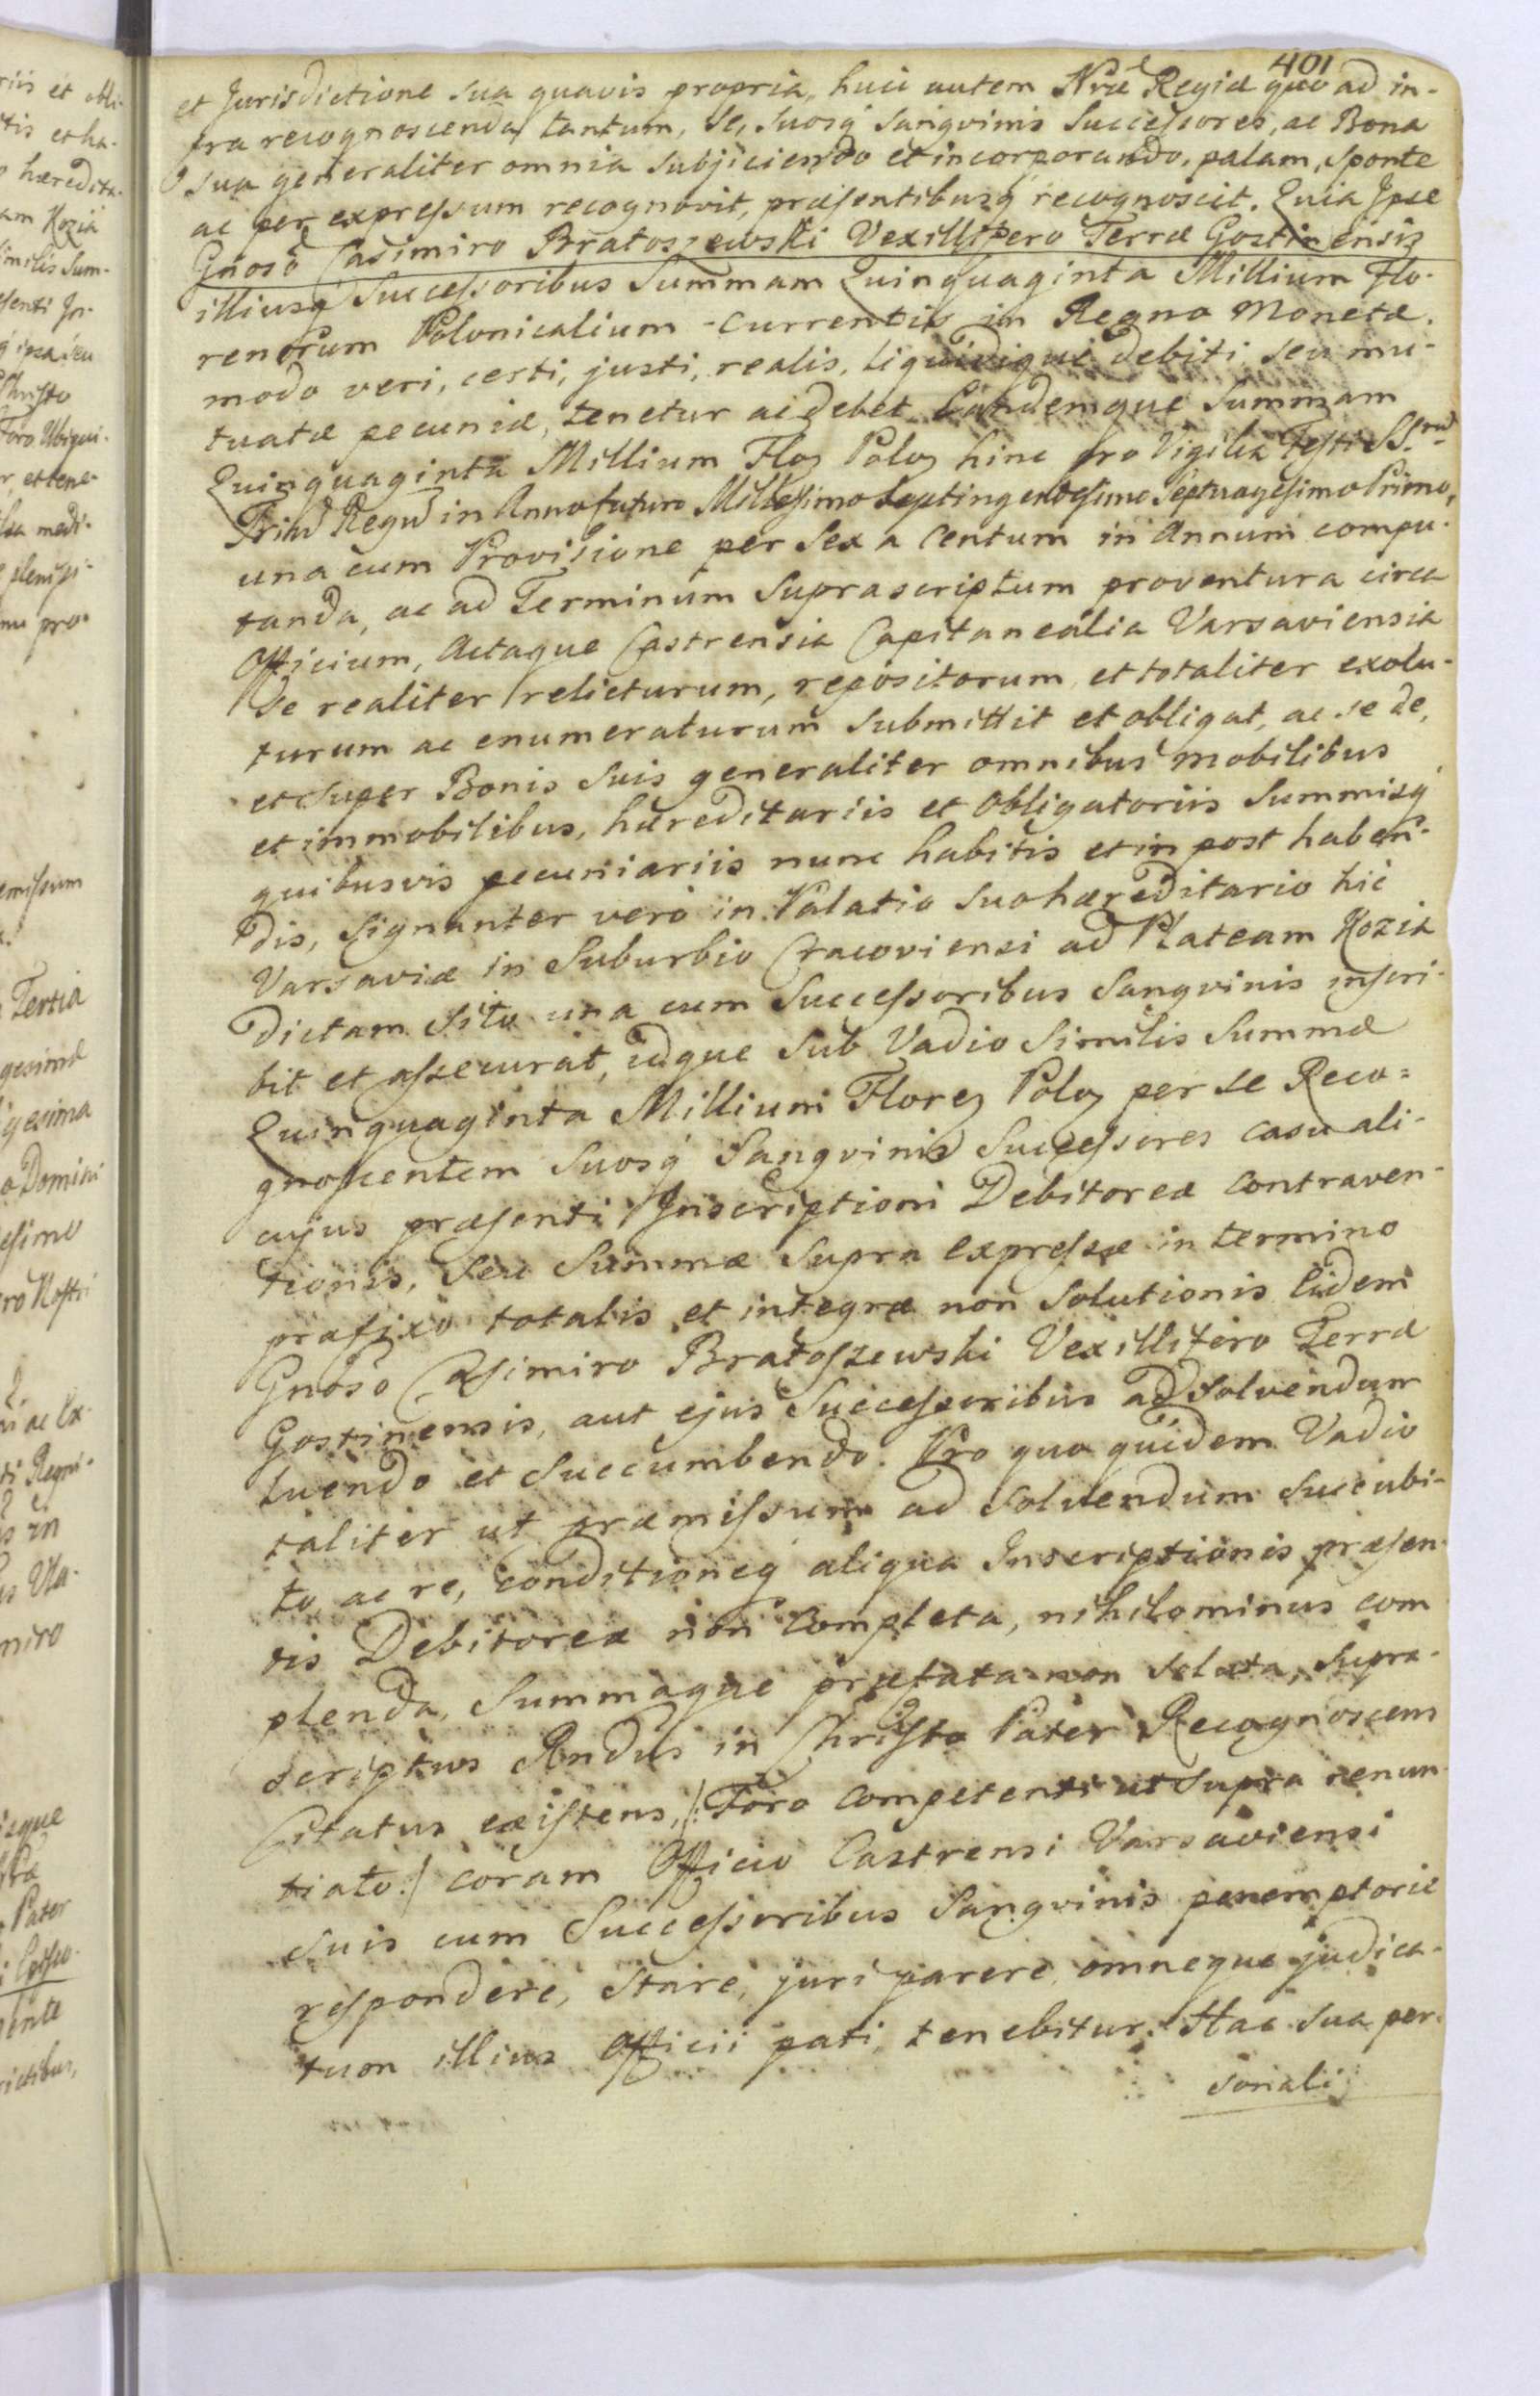 401
et Jurisdictione sua quavis propria, huic autem Nræ Regiæ quo ad in-
fra recognoscenda tantum, se, suosq Sangvinis Successores, ac Bona
sua generaliter omnia subjiciendo et incorporando, palam, sponte
ac per expressum recognovit, præsentibusq recognoscit. Quia Ipse
Gnoso Casimiro Bratoszewski Vexillifero Terræ Gostinensis
illiusq Successoribus Summam Quinquaginta Millium Flo-
renorum Polonicalium currentis in Regno Monetæ.
modo veri, certi, justi, realis, liquidique debiti seu mu-
tuatæ pecuniæ, tenetur ac debet Eandemque Summam
Quinquaginta Millium Flor Polon hinc pro Vigilia Festi SS.
Trium Regum in Anno futuro Millesimo Septingentesimo Septuagesimo Primo,
una cum Provisione per Sex a Centum in Annum compu-
tanda, ac ad Terminum Suprascriptum proventura circa
Officium, Actaque Castrensia Capitanealia Varsaviensia
Se realiter relicturum, repositorum et totaliter exolu-
turum ac enumeraturum submittit et obligat, ac se de,
et super Bonis suis generaliter omnibus mobilibus
et immobilibus, hæreditariis et obligatoriis Summisq
quibusvis pecuniariis nunc habitis et in post haben-
dis, signanter vero in Palatio suo hæreditario hic
Varsaviæ in Suburbio Cracoviensi ad Plateam Kozia
dictam sito una cum Successoribus Sangvinis inscri-
bit et assecurat, idque sub Vadio similis Summæ
Quinquaginta Millium Floren Polon per se Reco=
gnoscentem suosq Sangvinis Successores casu ali-
cujus præsenti Inscriptioni Debitoreæ contraven-
tionis, seu Summæ supra expressæ in termino
præfixo totalis et integræ non solutionis Eidem
Gnoso Casimiro Bratoszewski Vexillifero Terræ
Gostinensis, aut ejus Successoribus ad solvendum
luendo et succumbendo. Pro quo quidem Vadio
taliter ut præmissum ad solvendum succubi-
to, ac re, conditioneq aliqua Inscriptionis præsen-
tis Debitoreæ non completa, nihilominus com
plenda, Summaque præfata non soluta, supra-
scriptus Rndus in Christo Pater Recognoscens
Citatus existens, /: Foro competenti ut supra renun-
tiato :/ coram Officio Castrensi Varsaviensi
suis cum Successoribus Sangvinis peremptorie
respondere, stare, juri parere, omneque judica-
tum illius Officii pati, tenebitur. Hac sua per-
sonali